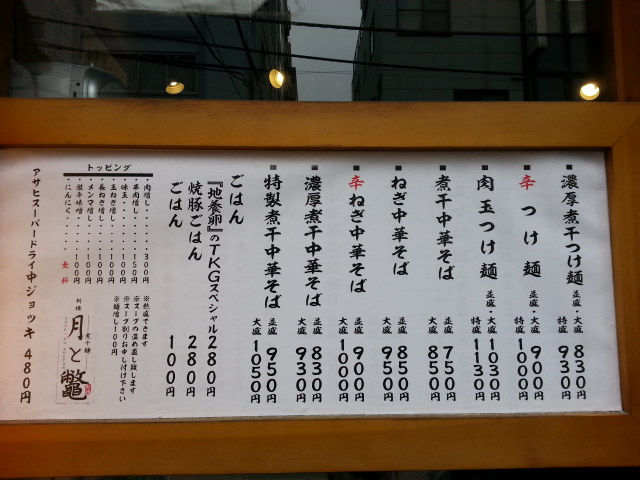 ■濃厚煮干つけ麺 並盛・大盛 830円
特盛 930円
■辛つけ麺 並盛・大盛 900円
特盛 1000円
■肉玉つけ麺 並盛・大盛 1030円
特盛 1130円
■煮干中華そば 並盛 750円
大盛 850円
■ねぎ中華そば 並盛 850円
大盛 950円
■辛ねぎ中華そば 並盛 900円
大盛 1000円
■濃厚煮干中華そば 並盛 830円
大盛 930円
■特製煮干中華そば 並盛 950円
大盛 1050円
ごはん
『地養卵』のTKGスペシャル 280円
焼豚ごはん 280円
ごはん 100円
トッピング
・肉増し・・・・300円
・半肉増し・・・150円
・味玉・・・・・100円
・玉ねぎ増し・・100円
・長ねぎ増し・・100円
・メンマ増し・・100円
・激辛味噌・・・100円
・にんにく・・・無料
※熱盛できます
※スープの温め直し致します
※スープ割りお申し付け下さい
※麺増し100円
月と鼈
アサヒスーパードライ中ジョッキ 480円